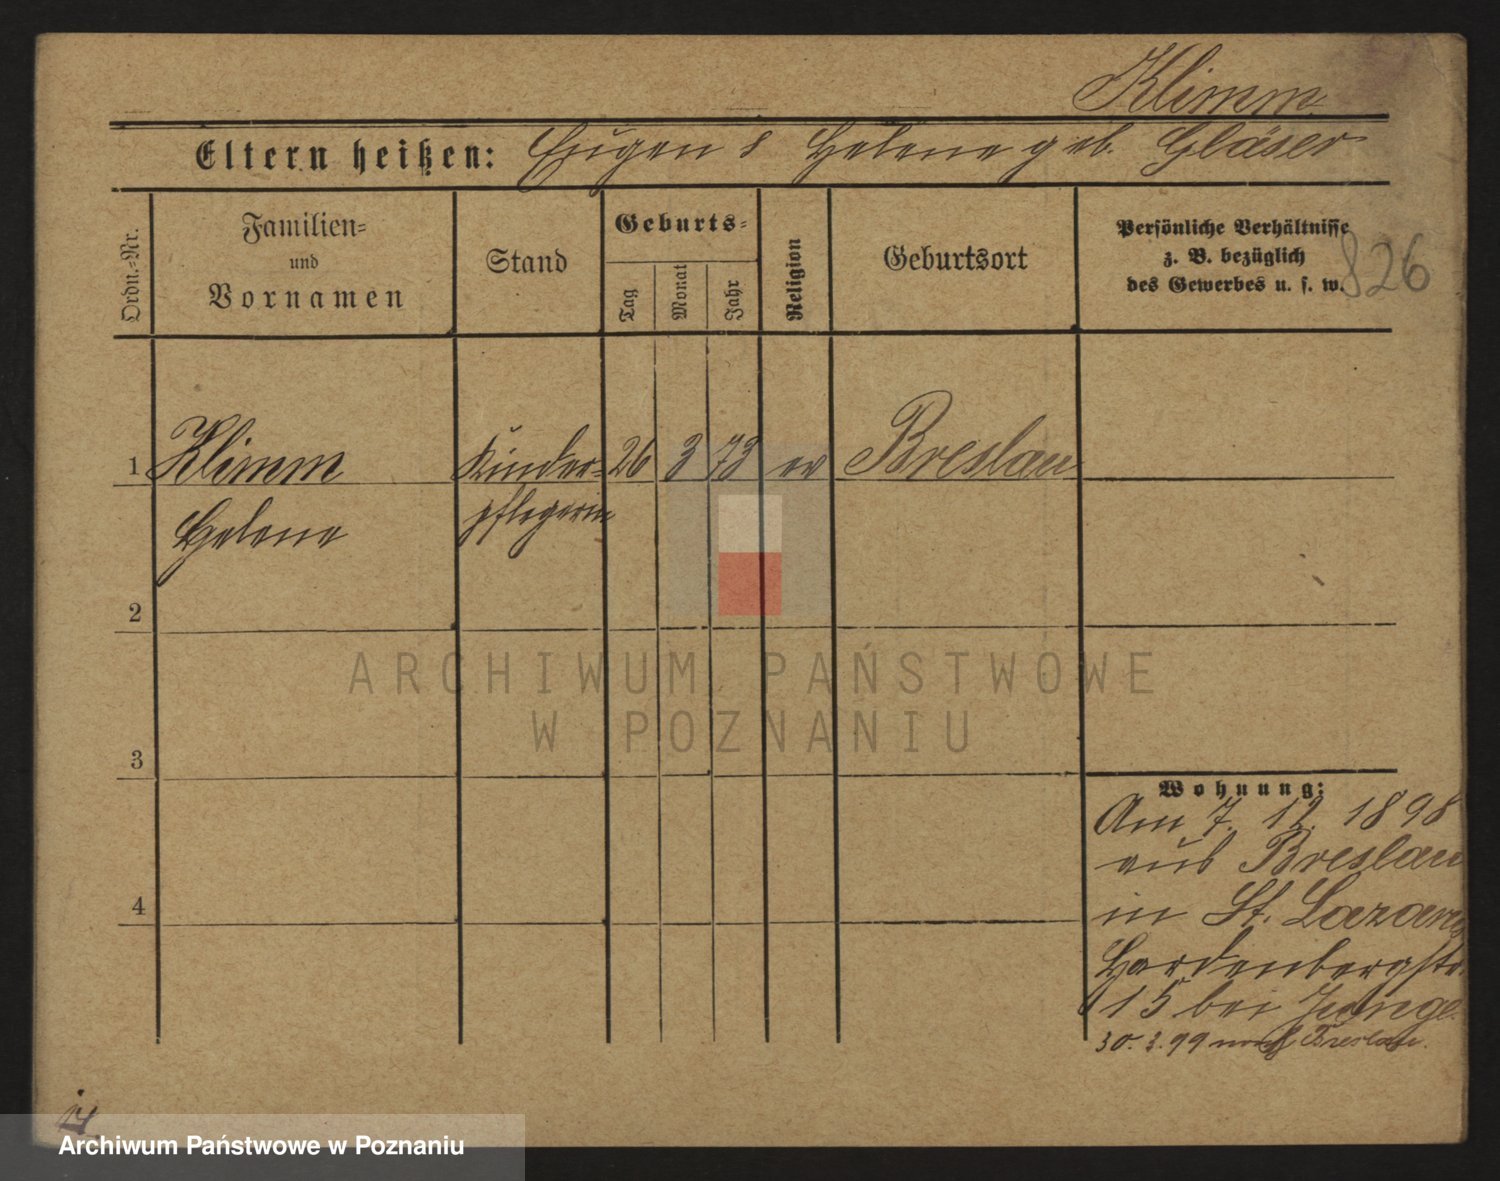 Klimm
Eltern heißen: Eugen & Helene geb. Gläser
Ordn.-Nr.
Familien-
und
Vornamen
Stand
Geburts-
Tag
Monat
Jahr
Religion
Geburtsort
Persönliche Verhältnisse
z. B. bezüglich
des Gewerbes u. s. w.
826
1 Klimm Kinder- 26 3 73 ev Breslau
Helene pflegerin
2
3
4
ARCHIWUM PAŃSTWOWE
W POZNANIU
Wohnung:
Am 7. 12. 1898
aus Breslau
in St. Lazarus
Hardenbergstr.
15 bei Junge.
30. 3. 99 nach Breslau.
Archiwum Państwowe w Poznaniu